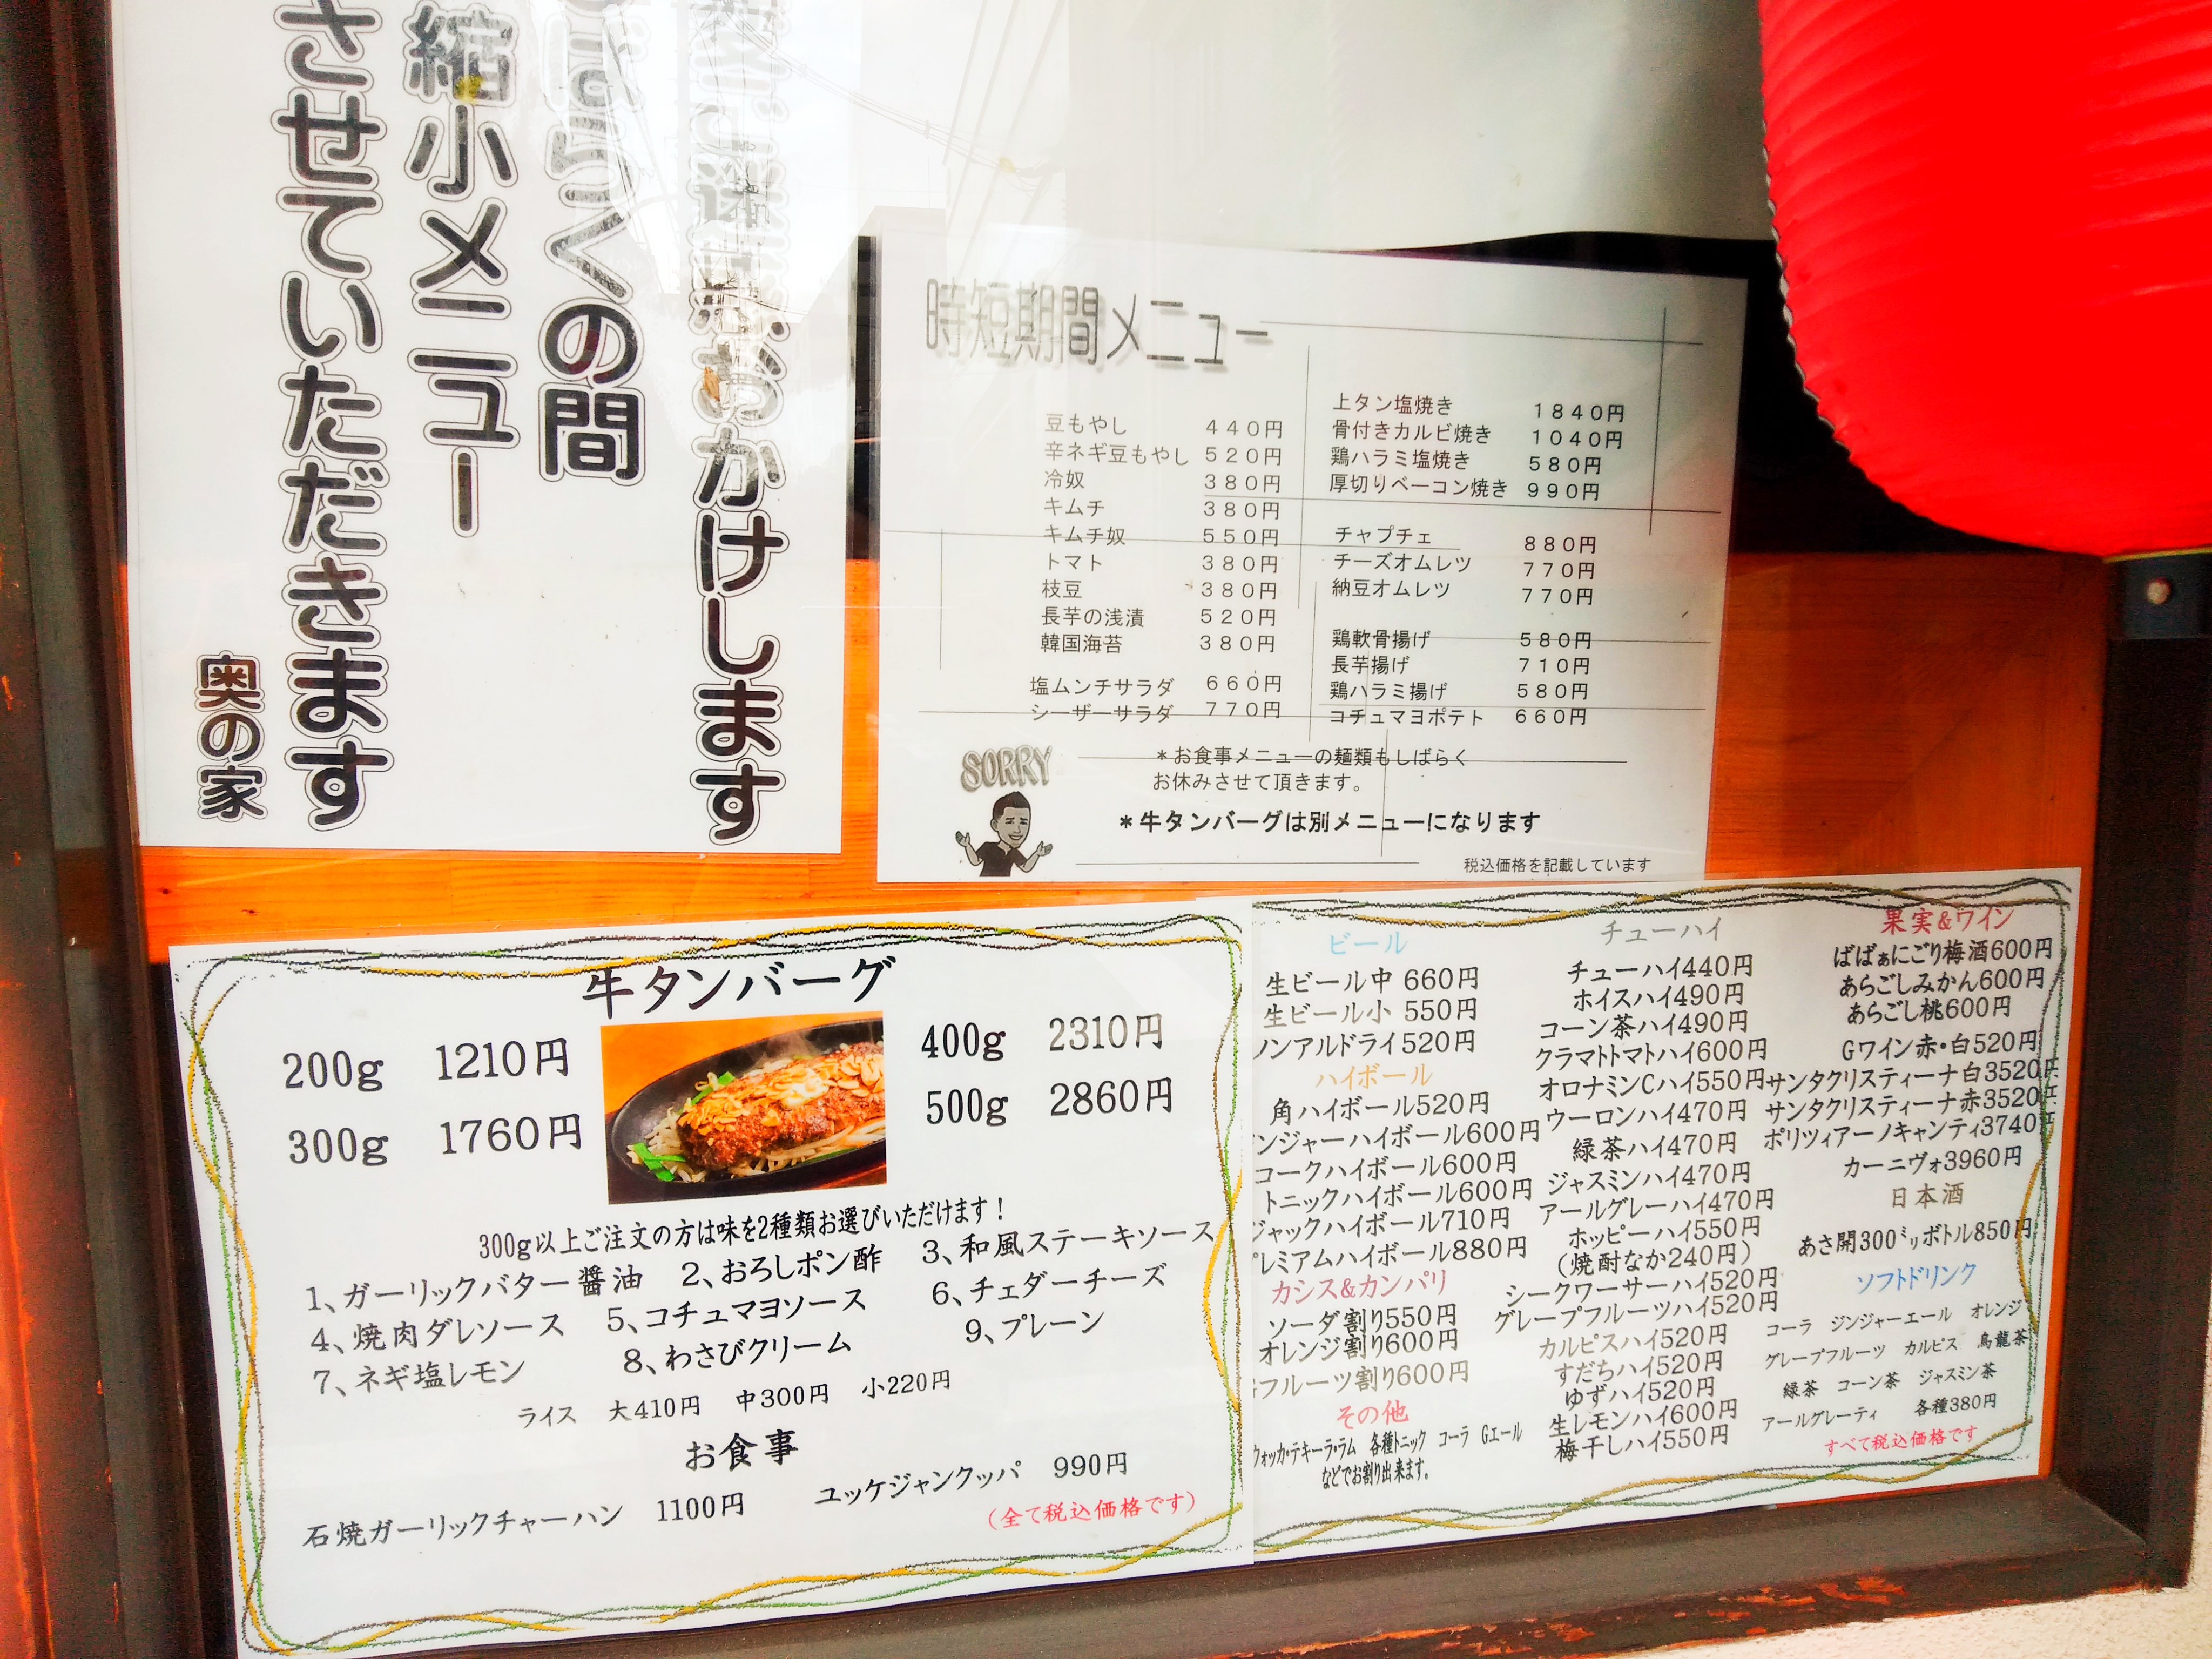 おかけします
らくの間
縮小メニュー
させていただきます
奥の家
時短期間メニュー
豆もやし 440円
辛ネギ豆もやし 520円
冷奴 380円
キムチ 380円
キムチ奴 550円
トマト 380円
枝豆 380円
長芋の浅漬 520円
韓国海苔 380円
塩ムンチサラダ 660円
シーザーサラダ 770円
上タン塩焼き 1840円
骨付きカルビ焼き 1040円
鶏ハラミ塩焼き 580円
厚切りベーコン焼き 990円
チャプチェ 880円
チーズオムレツ 770円
納豆オムレツ 770円
鶏軟骨揚げ 580円
長芋揚げ 710円
鶏ハラミ揚げ 580円
コチュマヨポテト 660円
SORRY
＊お食事メニューの麺類もしばらく
お休みさせて頂きます。
＊牛タンバーグは別メニューになります
税込価格を記載しています
牛タンバーグ
200g 1210円
300g 1760円
400g 2310円
500g 2860円
300g以上ご注文の方は味を2種類お選びいただけます！
1、ガーリックバター醤油 2、おろしポン酢 3、和風ステーキソース
4、焼肉ダレソース 5、コチュマヨソース 6、チェダーチーズ
7、ネギ塩レモン 8、わさびクリーム 9、プレーン
ライス 大410円 中300円 小220円
お食事
石焼ガーリックチャーハン 1100円 ユッケジャンクッパ 990円
（全て税込価格です）
ビール
生ビール中 660円
生ビール小 550円
ノンアルドライ520円
ハイボール
角ハイボール520円
ンジャーハイボール600円
コークハイボール600円
トニックハイボール600円
ジャックハイボール710円
プレミアムハイボール880円
カシス&カンパリ
ソーダ割り550円
オレンジ割り600円
フルーツ割り600円
その他
ウォッカ・テキーラ・ラム 各種トニック コーラ Gエール
などでお割り出来ます。
チューハイ
チューハイ440円
ホイスハイ490円
コーン茶ハイ490円
クラマトトマトハイ600円
オロナミンCハイ550円
ウーロンハイ470円
緑茶ハイ470円
ジャスミンハイ470円
アールグレーハイ470円
ホッピーハイ550円
（焼酎なか240円）
シークワーサーハイ520円
グレープフルーツハイ520円
カルピスハイ520円
すだちハイ520円
ゆずハイ520円
生レモンハイ600円
梅干しハイ550円
果実&ワイン
ばばぁにごり梅酒600円
あらごしみかん600円
あらごし桃600円
Gワイン赤・白520円
サンタクリスティーナ白3520円
サンタクリスティーナ赤3520円
ポリツィアーノキャンティ3740円
カーニヴォ3960円
日本酒
あさ開300㍉リボトル850円
ソフトドリンク
コーラ ジンジャーエール オレンジ
グレープフルーツ カルピス 烏龍茶
緑茶 コーン茶 ジャスミン茶
アールグレーティ 各種380円
すべて税込価格です